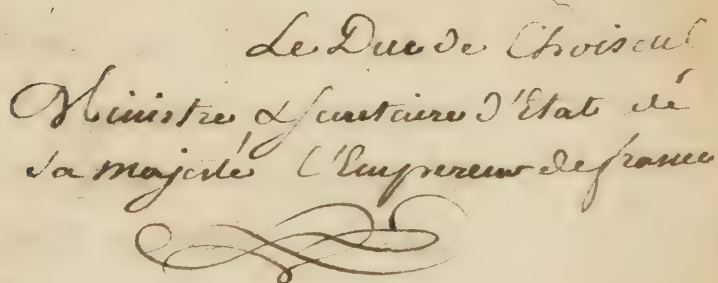 Le Duc de Choiseul
Ministre & Secretaire d'Etat de
sa majesté, l'Empereur de france